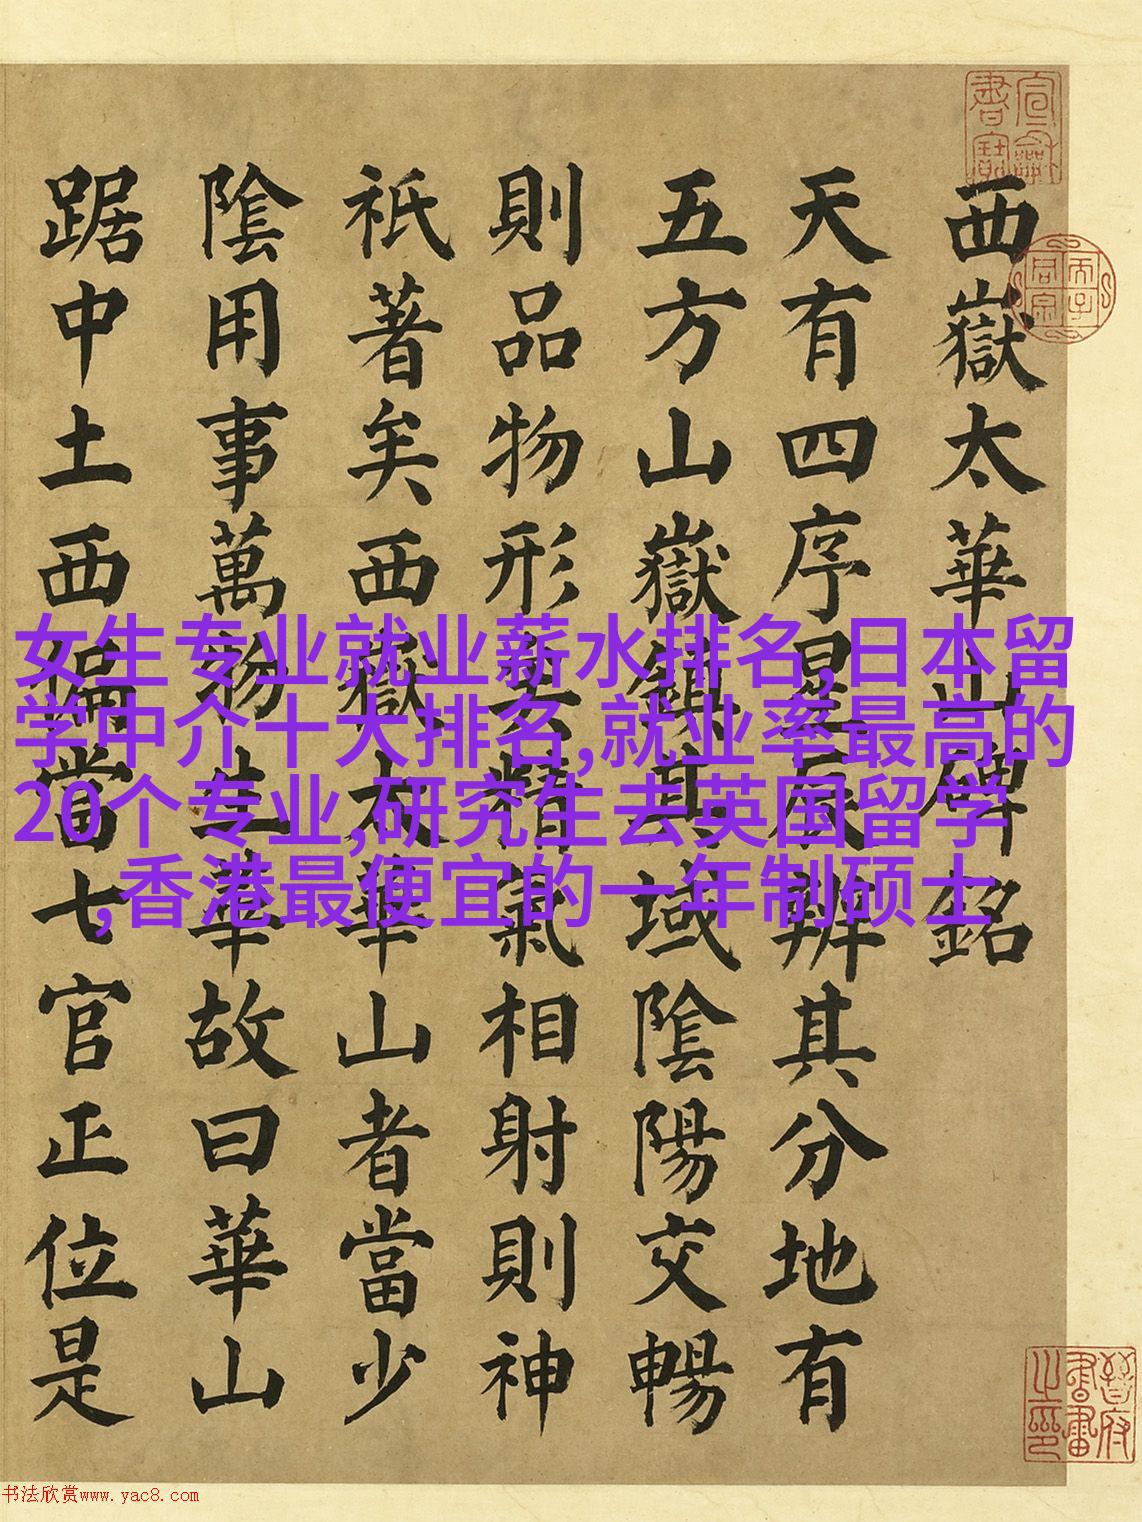 西嶽太華山碑銘
天有四序星辰辨其分地有
五方山嶽鎮其域陰陽交暢
則品物形矣精氣相射則神
祇著矣西嶽太華山者當少
陰用事萬物生華故曰華山
踞中土西偏當七官正位是
女生专业就业薪水排名,日本留
学中介十大排名,就业率最高的
20个专业,研究生去英国留学
,香港最便宜的一年制硕士
晉府書畫之印
书法欣赏www.yac8.com